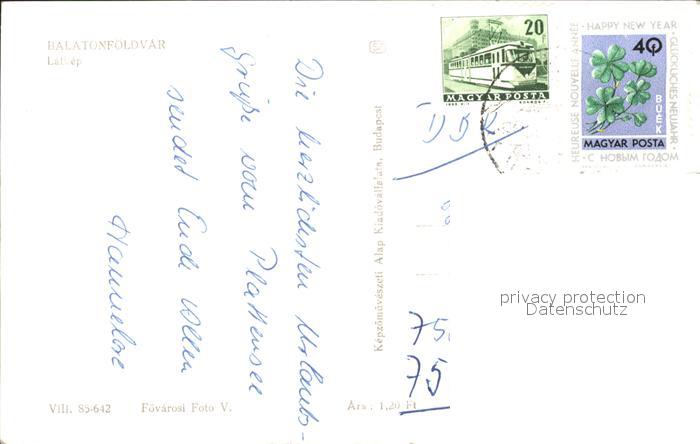 BALATONFÖLDVÁR
Látkép
Die herzlichsten Urlaubs-
grüße vom Plattensee
sendet Euch allen
Hannelore
VIII. 85-642 Fővárosi Foto V. Ára: 1,20 Ft
Képzőművészeti Alap Kiadóvállalata, Budapest
20
MAGYAR POSTA
HAPPY NEW YEAR
HEUREUSE NOUVELLE ANNÉE
GLÜCKLICHES NEUJAHR
40
BUÉK
MAGYAR POSTA
С НОВЫМ ГОДОМ
DDR
75
75
privacy protection
Datenschutz